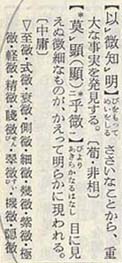 【以レ微知レ明】びをもってめいをしる ささいなことから、重
大な事実を発見する。〔荀・非相〕
【莫レ顕（顯）三乎微一】びよりあらわるるはなし 目に見
えぬ微細なものが、かえって明らかに現われる。
〔中庸〕
▽至微・式微・衰微・側微・細微・幾微・紫微・極
微・軽微・精微・賤微・翠微・機微・隠微